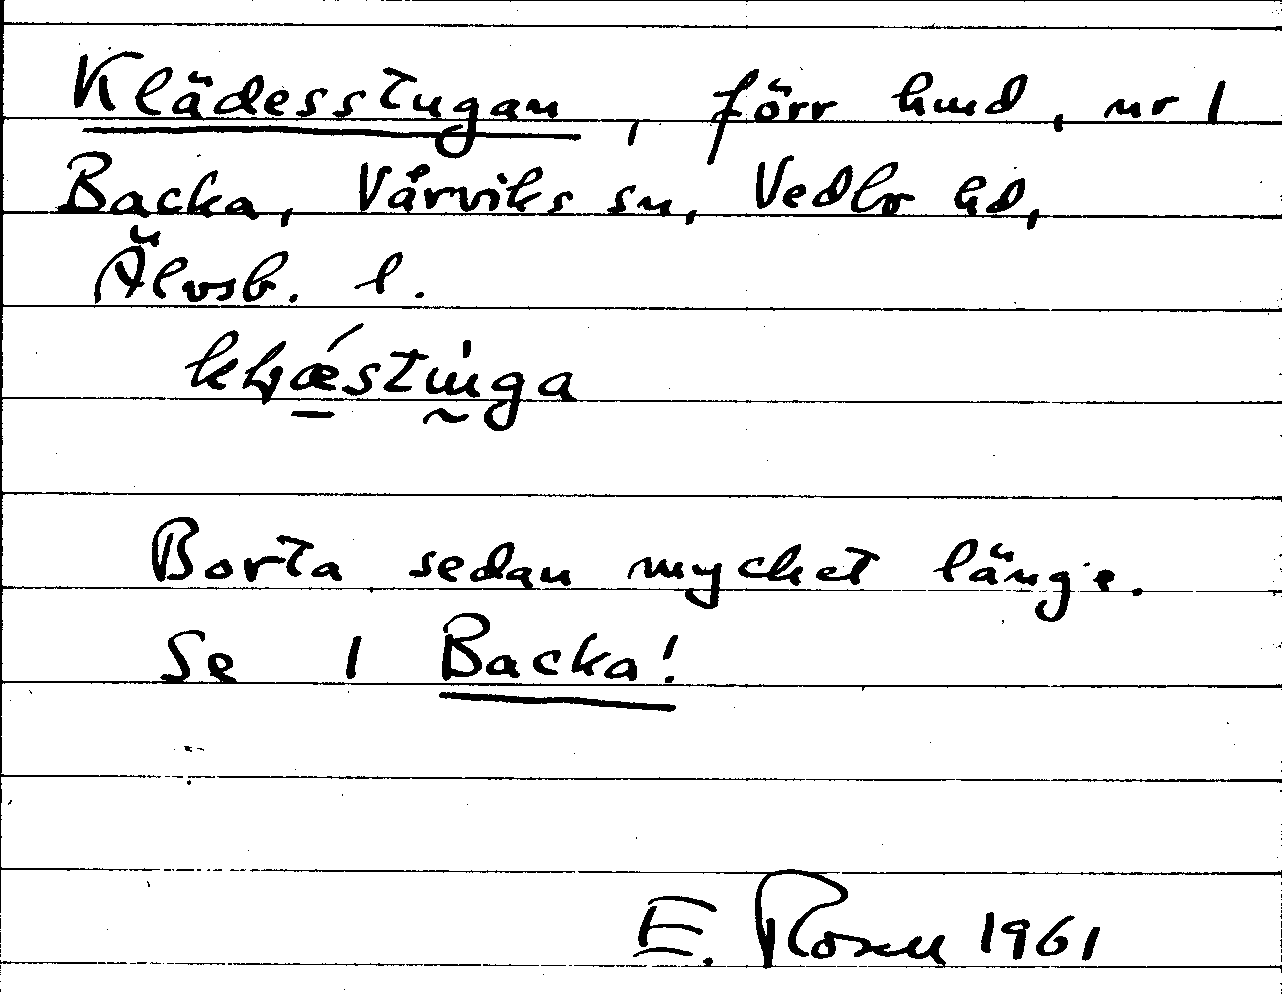 Klädesstugan, förr hmd, nr 1
Backa, Vårviks sn, Vedbo hd,
Älvsb. l.
Borta sedan mycket länge.
Se 1 Backa!
E. Rosen 1961